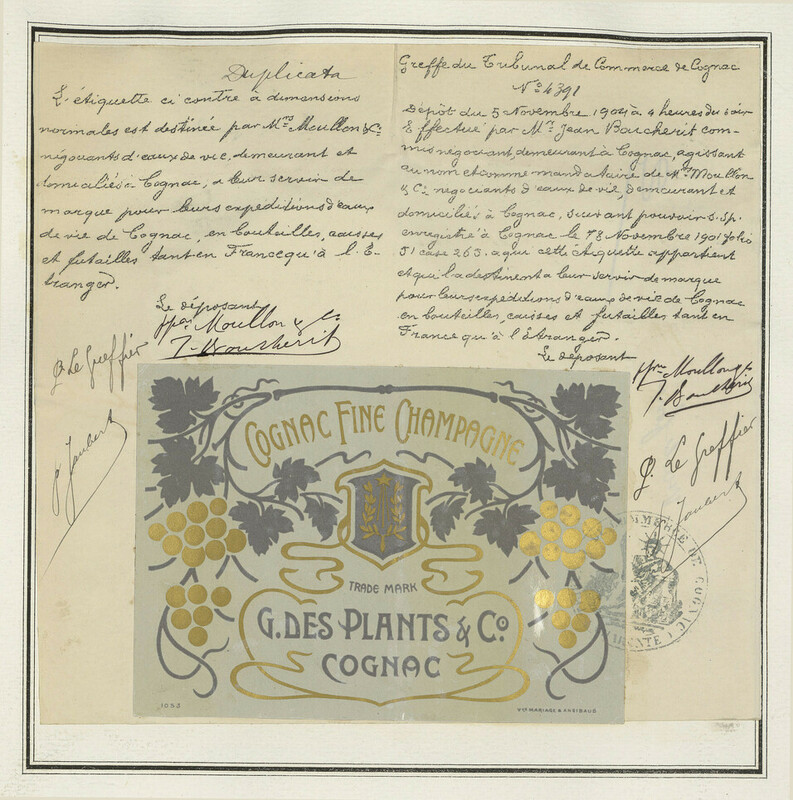 Duplicata
L'étiquette ci contre à dimensions
normales est destinée par Mrs Moullon & Cie
négociants d'eaux de vie, demeurant et
domiciliés à Cognac, a leur servir de
marque pour leurs expéditions d'eaux
de vie de Cognac, en bouteilles, caisses
et futailles tant en France qu'à l'É-
tranger.
Le déposant
ppon Moullon & Co
J. Boucherit
P. Le Greffier
Jaubert
Greffe du Tribunal de Commerce de Cognac
No 4391
Dépôt du 5 Novembre 1904 à 4 heures du soir
Effectué par Mr. Jean Boucherit com-
mis négociant, demeurant à Cognac, agissant
au nom et comme mandataire de Mrs Moullon
& Cie négociants d'eaux de vie, demeurant et
domiciliés à Cognac, suivant pouvoir s.sp.
enregistré à Cognac le Novembre 1901 folio
51 case 265. a qui cette étiquette appartient
et qui la destinent a leur servir de marque
pour leurs expéditions d'eaux de vie de Cognac
en bouteilles, caisses et futailles tant en
France qu'à l'Étranger.
Le déposant
ppon Moullon & Co
J. Boucherit
P. Le Greffier
Jaubert
COGNAC FINE CHAMPAGNE
TRADE MARK
G. DES PLANTS & Co
COGNAC
1053
Vve MARIAGE &
COMMERCE DE COGNAC